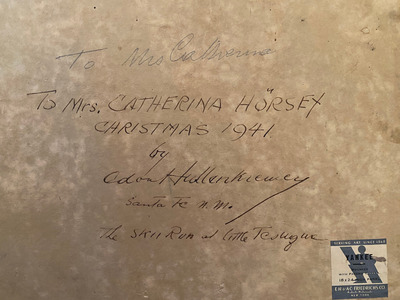 To Mrs Catherina
To Mrs. CATHERINA HÖRSEY
CHRISTMAS 1941
by
Odon Hullenkremer
Santa Fe N.M.
The Skii Run at Little Tesuque
SERVING ART SINCE 1868
YANKEE
E.H. & A.C. FRIEDRICHS CO.
NEW YORK